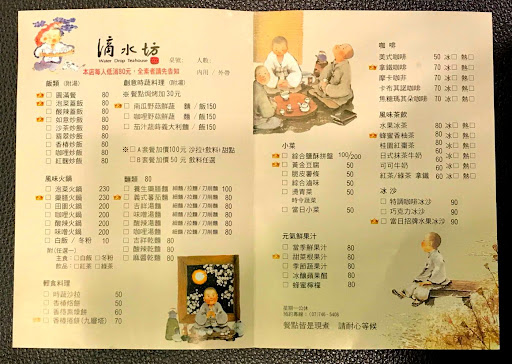 滴水坊
Water Drop Teahouse
桌號： 人數：
內用 / 外帶
本店每人低消80元，全素者請先告知
飯類 (附湯)
圓滿餐 80
泡菜蓋飯 80
酸辣蓋飯 80
如意炒飯 80
沙茶炒飯 80
翡翠炒飯 80
香椿炒飯 80
咖哩炒飯 80
紅麴炒飯 80
創意時蔬料理 (附湯)
※ 餐點焗烤加30元
南瓜野菇鮮蔬 麵 / 飯150
咖哩野菇鮮蔬 麵 / 飯150
茄汁蔬時義大利麵 / 飯150
※ A套餐加價100元 沙拉/飲料/甜點
B套餐加價50元 飲料任選
風味火鍋
泡菜火鍋 230
藥膳火鍋 230
田園火鍋 200
咖哩火鍋 200
酸辣火鍋 200
味噌火鍋 200
白飯 / 冬粉 10
附(任選一)
主食：白飯 冬粉
飲品：紅茶 綠茶
麵類 80
養生藥膳麵 細麵/拉麵/刀削麵 100
義式蕃茄麵 細麵/拉麵/刀削麵 80
吉祥湯麵 細麵/拉麵/刀削麵 80
味噌湯麵 細麵/拉麵/刀削麵 80
酸辣湯麵 細麵/拉麵/刀削麵 80
咖哩湯麵 細麵/拉麵/刀削麵 80
吉祥乾麵 80
酸辣乾麵 80
麻醬乾麵 80
輕食料理
時蔬沙拉 50
香椿捲餅 50
香椿燕捲餅 60
香椿捲餅(九層塔) 70
咖啡
美式咖啡 50 冰 熱
拿鐵咖啡 70 冰 熱
摩卡咖啡 70 冰 熱
卡布其諾咖啡 70 冰 熱
焦糖瑪其朵咖啡 70 冰 熱
風味茶飲
水果冰茶 80 冰 熱
蜂蜜香柚茶 80 冰 熱
桂圓紅棗茶 80 冰 熱
日式抹茶牛奶 60 冰 熱
可可牛奶 60 冰 熱
紅茶/綠茶 拿鐵 60 冰 熱
冰沙
特調咖啡冰沙 90
巧克力冰沙 90
當日招牌水果冰沙 90
小菜
綜合鹽酥拼盤 100/200
黃金豆腐 50
脆皮薯條 50
綜合滷味 50
燙青菜 50
時令蔬菜
當日小菜 50
元氣鮮果汁
當季鮮果汁 80
甜菜根果汁 80
季節蔬果汁 80
冰釀蘋果醋 80
蜂蜜檸檬 80
星期一公休
餐點皆是現煮 請耐心等候